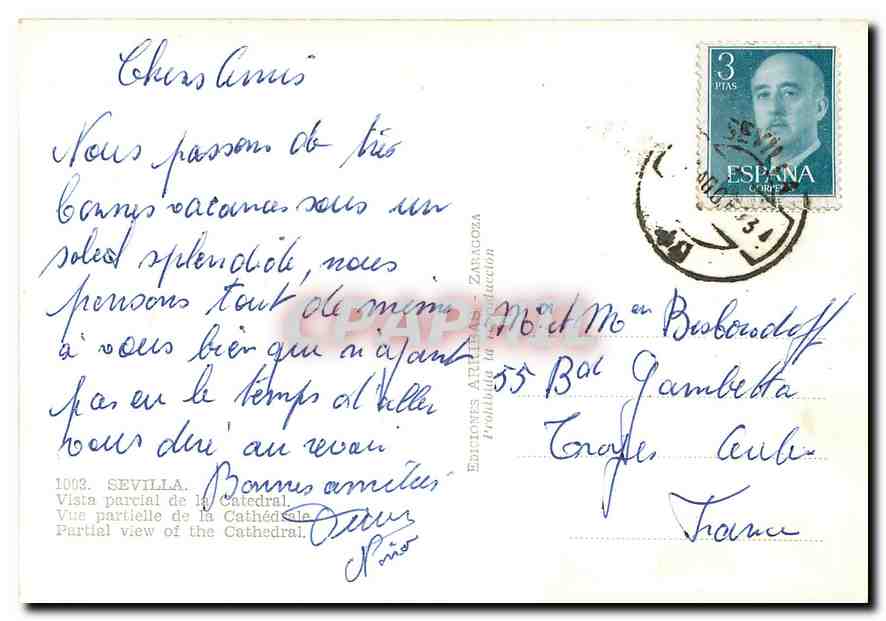 Chers Amis
Nous passons de très
bonnes vacances sous un
soleil splendide, nous
pensons tout de même
à vous bien que n'ayant
pas eu le temps d'aller
vous dire au revoir
Bonnes amitiés
1002. SEVILLA.
Vista parcial de la Catedral.
Vue partielle de la Cathédrale.
Partial view of the Cathedral.
EDICIONES ARRIBAS - ZARAGOZA
Prohibida la reproducción
3
PTAS
ESPAÑA
CORREOS
SEVILLA
Mr et Mme
55 Bd Gambetta
Troyes Aube
France